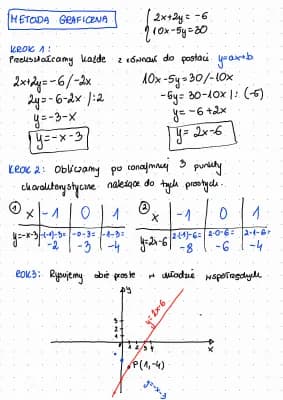 METODA GRAFICZNA
2x+2y= -6
10x-5y=30
KROK 1:
Przekształcamy każde z równań do postaci y=ax+b
2x+2y=-6/-2x
2y=-6-2x |:2
y=-3-x
y=-x-3
10x-5y=30/-10x
-5y=30-10x |: (-5)
y=-6+2x
y=2x-6
KROK 2: Obliczamy po conajmniej 3 punkty
charakterystyczne należące do tych prostych.
① x -1 0 1
y=-x-3 -(-1)-3= -0-3= -1-3=
-2 -3 -4
② x -1 0 1
y=2x-6 2·(-1)-6= 2·0-6= 2·1-6=
-8 -6 -4
KROK 3: Rysujemy obie proste w układzie współrzędnych
y
y=2x-6
3
2
1
1 2 3 4
x
P(1,-4)
y=-x-3